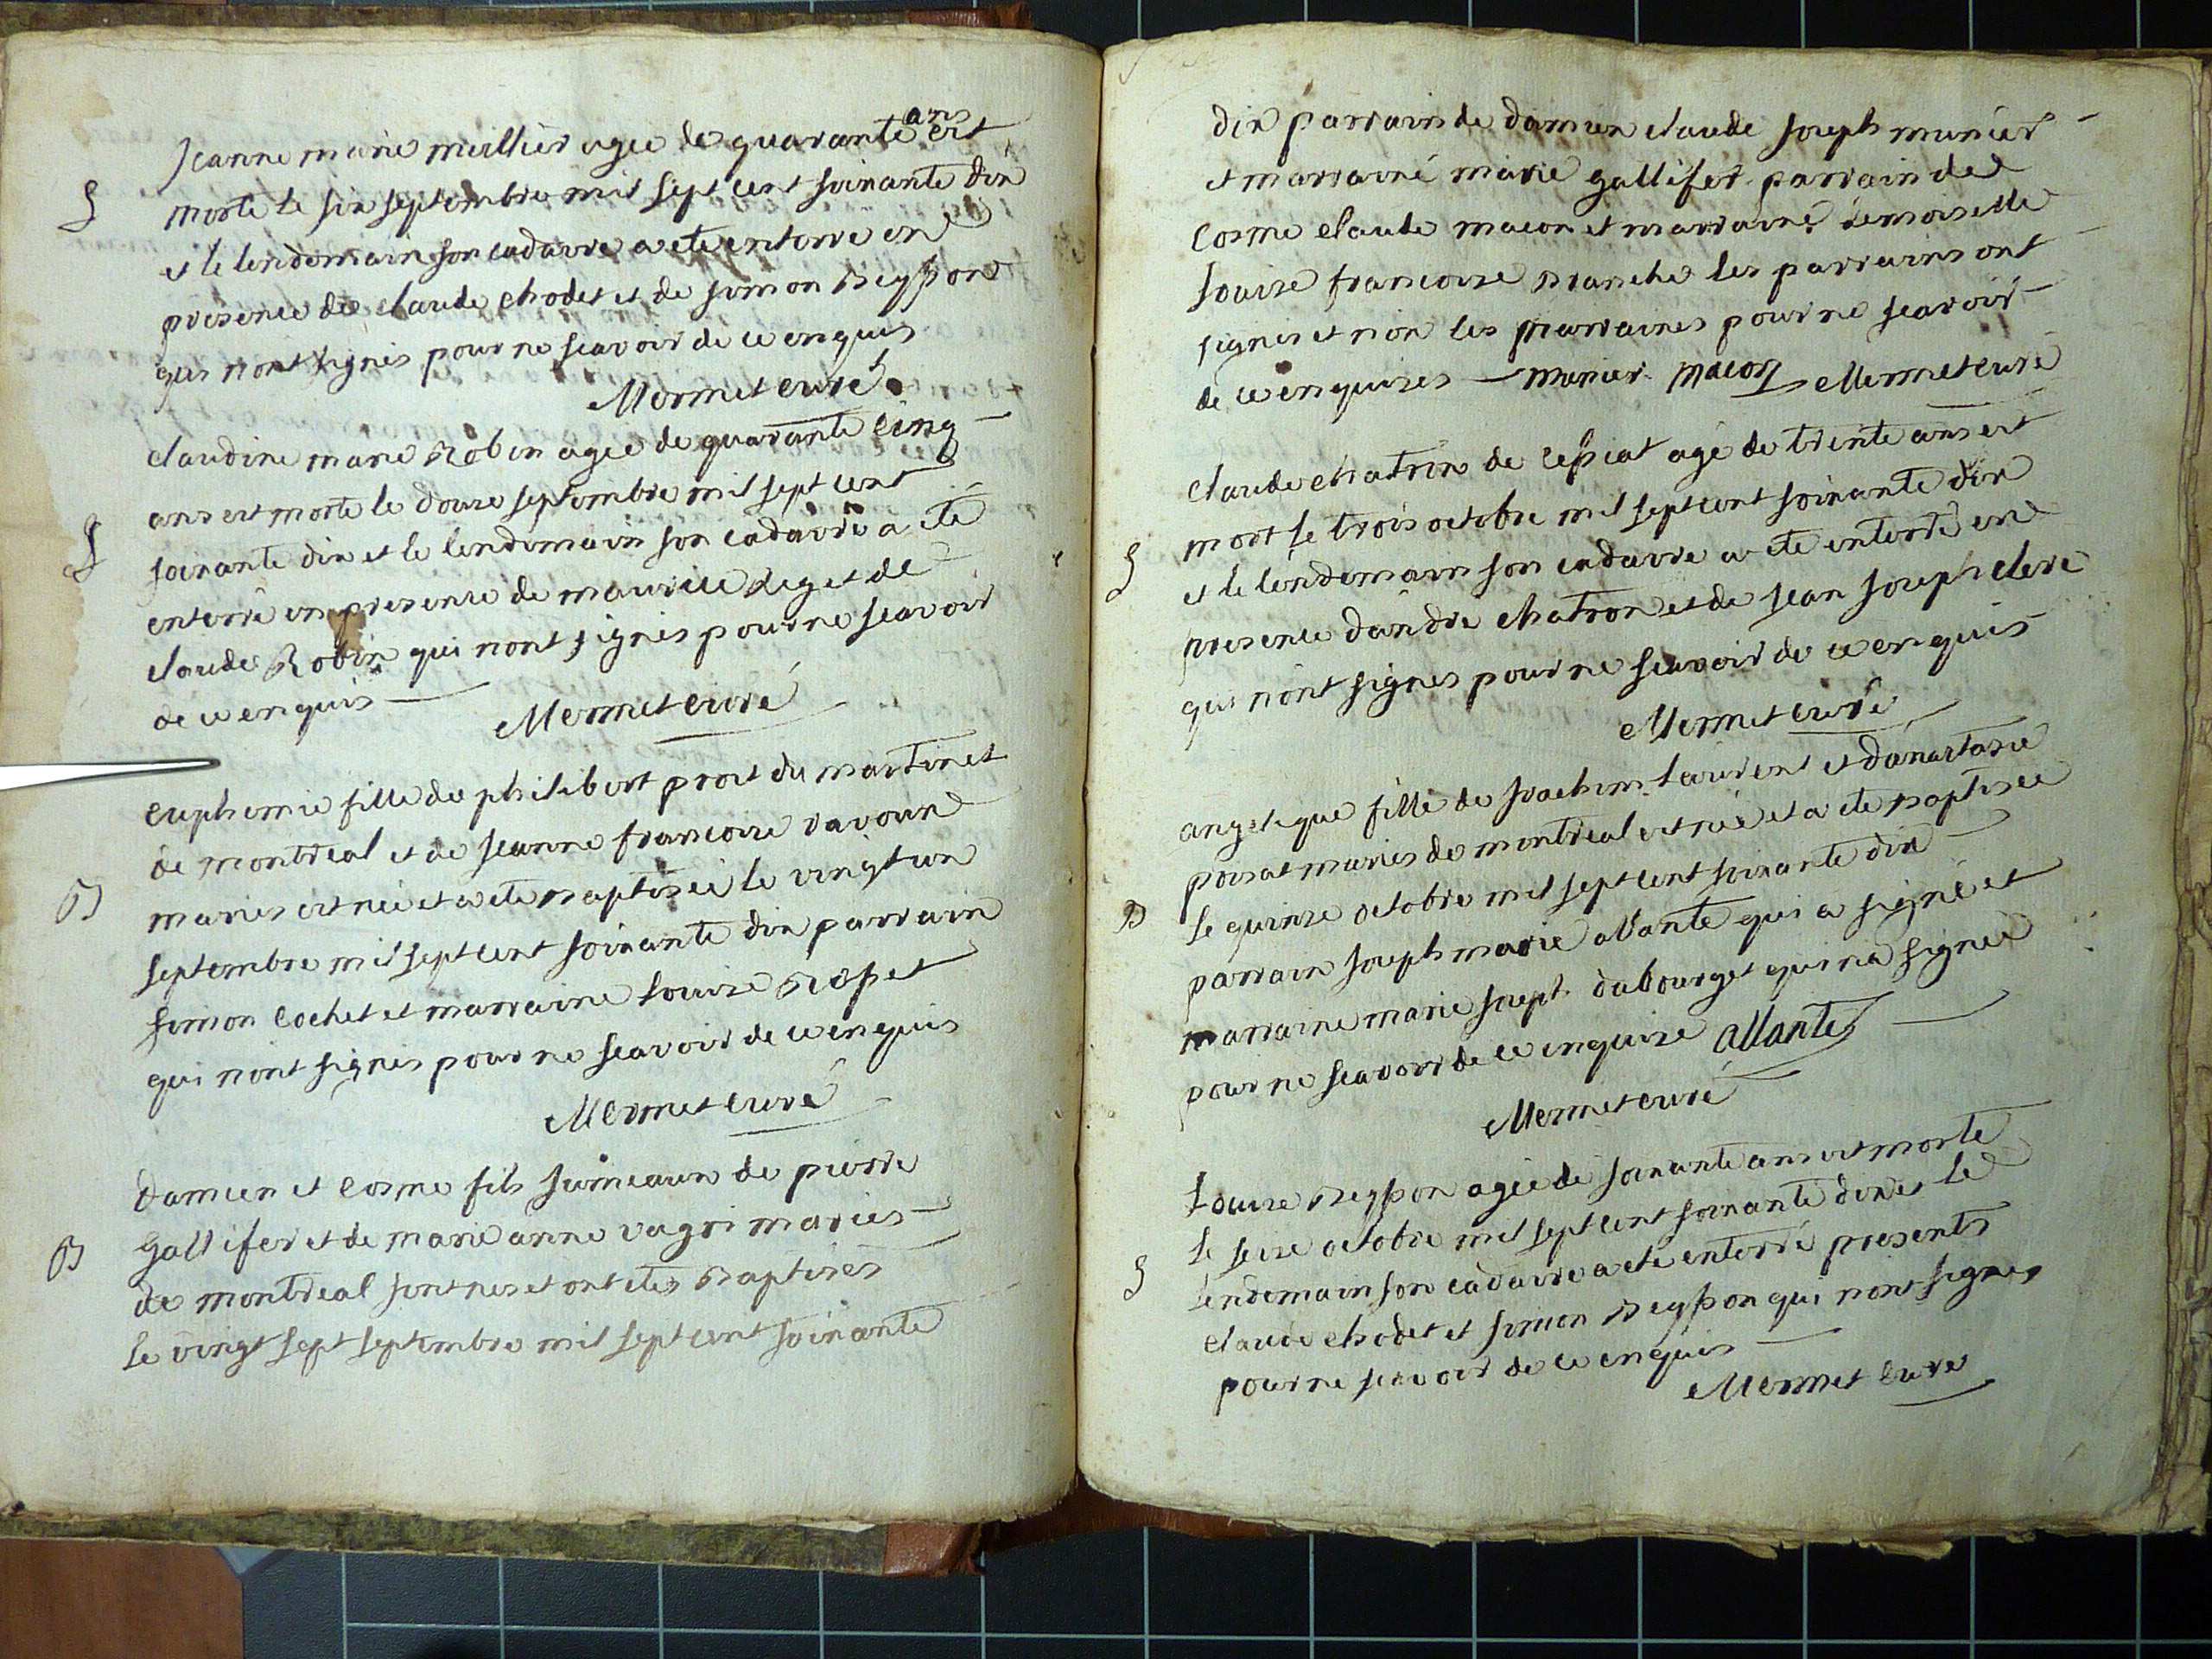 Jeanne marie meillier agee de quarante ans est
S morte le six septembre mil sept cent soixante dix
et le lendemain son cadavre a ete enterre en
presence de claude chodet et de simon Beysson
qui nont signes pour ne scavoir de ce enquis
Mermet curé
claudine marie Robin agée de quarante cinq
ans est morte le douze septembre mil sept cent
S soixante dix et le lendemain son cadavre a eté
enterré en presence de maurice et de
claude Robin qui nont signes pour ne scavoir
de ce enquis
Mermet curé
euphemie fille de philibert prost du martinet
de montreal et de jeanne francoise
B maries est née et a ete Baptisée le vingt un
septembre mil sept cent soixante dix parrain
simon cochet et marraine Louise
qui nont signes pour ne scavoir de ce enquis
Mermet curé
Damien et cosme fils jumeaux de pierre
B Gallifet et de marie anne maries
de montreal sont nes et ont etes Baptises
le vingt sept septembre mil sept cent soixante
dix parrain de damien claude joseph munier
et marraine marie gallifet parrain de
cosme claude macon et marraine demoiselle
Louise francoise Branche les parrains ont
signes et non les marraines pour ne scavoir
de ce enquises munier macon Mermet curé
claude chatron de age de trente ans est
mort le trois octobre mil sept cent soixante dix
S et le lendemain son cadavre a ete enterré en
presence dandré chatron et de jean joseph clerc
qui nont signes pour ne scavoir de ce enquis
Mermet curé
angelique fille de joachim Laurent et danastasie
poisat maries de montreal est née et a ete Baptisée
B le quinze octobre mil sept cent soixante dix
parrain joseph marie allante qui a signé et
marraine marie joseph dubourget qui na signée
pour ne scavoir de ce enquise allante
Mermet curé
Louise Beysson agée de soixante ans est morte
le seize octobre mil sept cent soixante dix et le
S lendemain son cadavre a ete enterré presents
claude chodet et simon Beysson qui nont signes
pour ne scavoir de ce enquis
Mermet curé